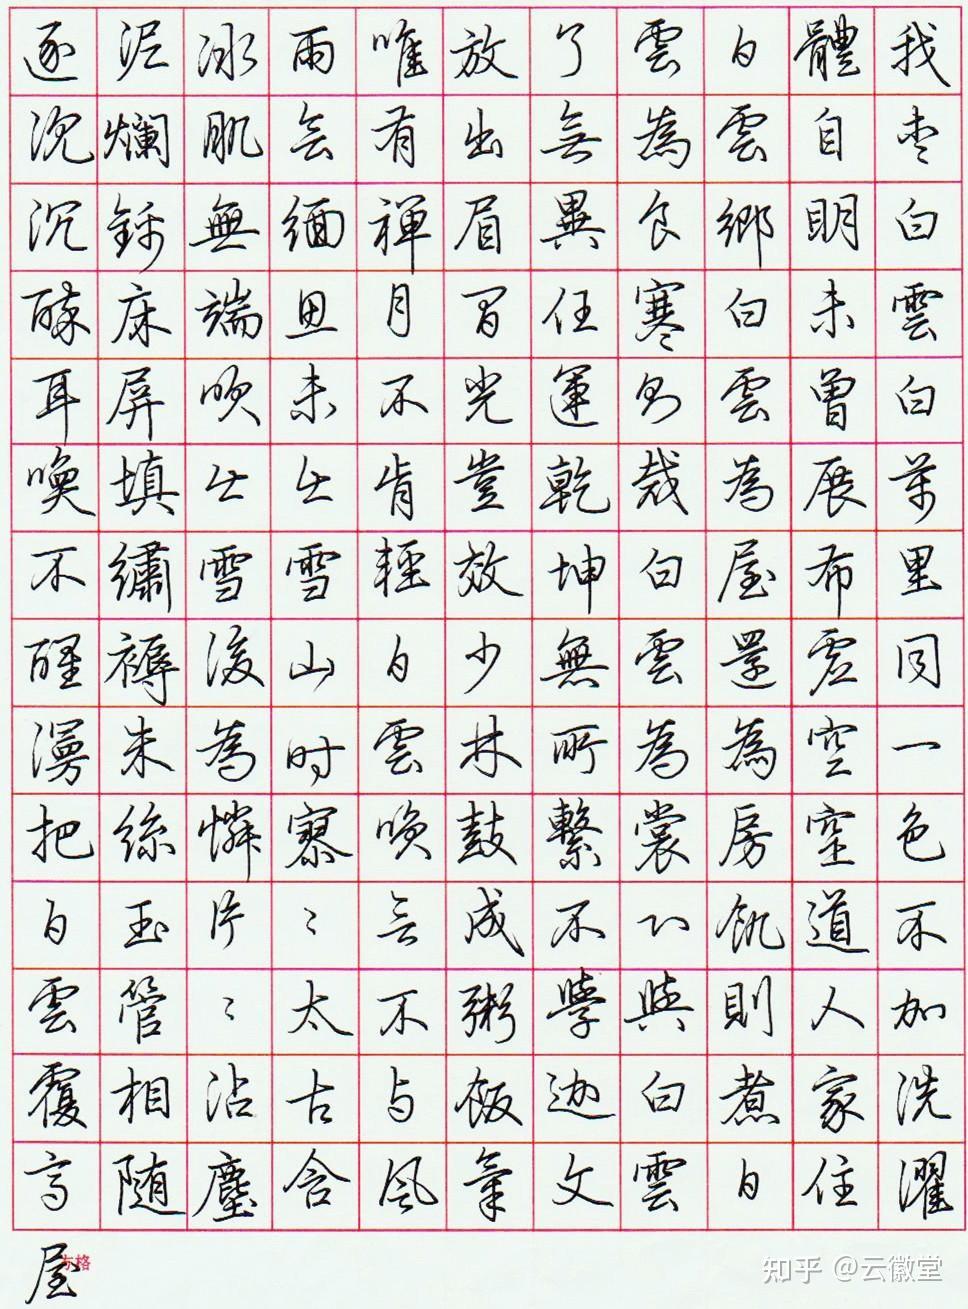 我白雲白萬里同一色不加洗濯
體自明未曾展布虚空空道人家住
白雲鄉白雲為屋還為房飢則煮白
雲為食寒裁白雲為裳心與白雲
了無異任運乾坤無所繫不學迦文
放出眉間光豈效少林鼓成粥飯氣
唯有禪月不肯輕白雲喚去不与風
雨会缅思未出雪山时寥々太古含
冰肌無端吹出雪後為憐片々沾塵
泥爛錦床屏填繡褥朱絲玉管相随
逐沉沉醉耳喚不醒漫把白雲覆高
屋
方格
知乎 @云徽堂